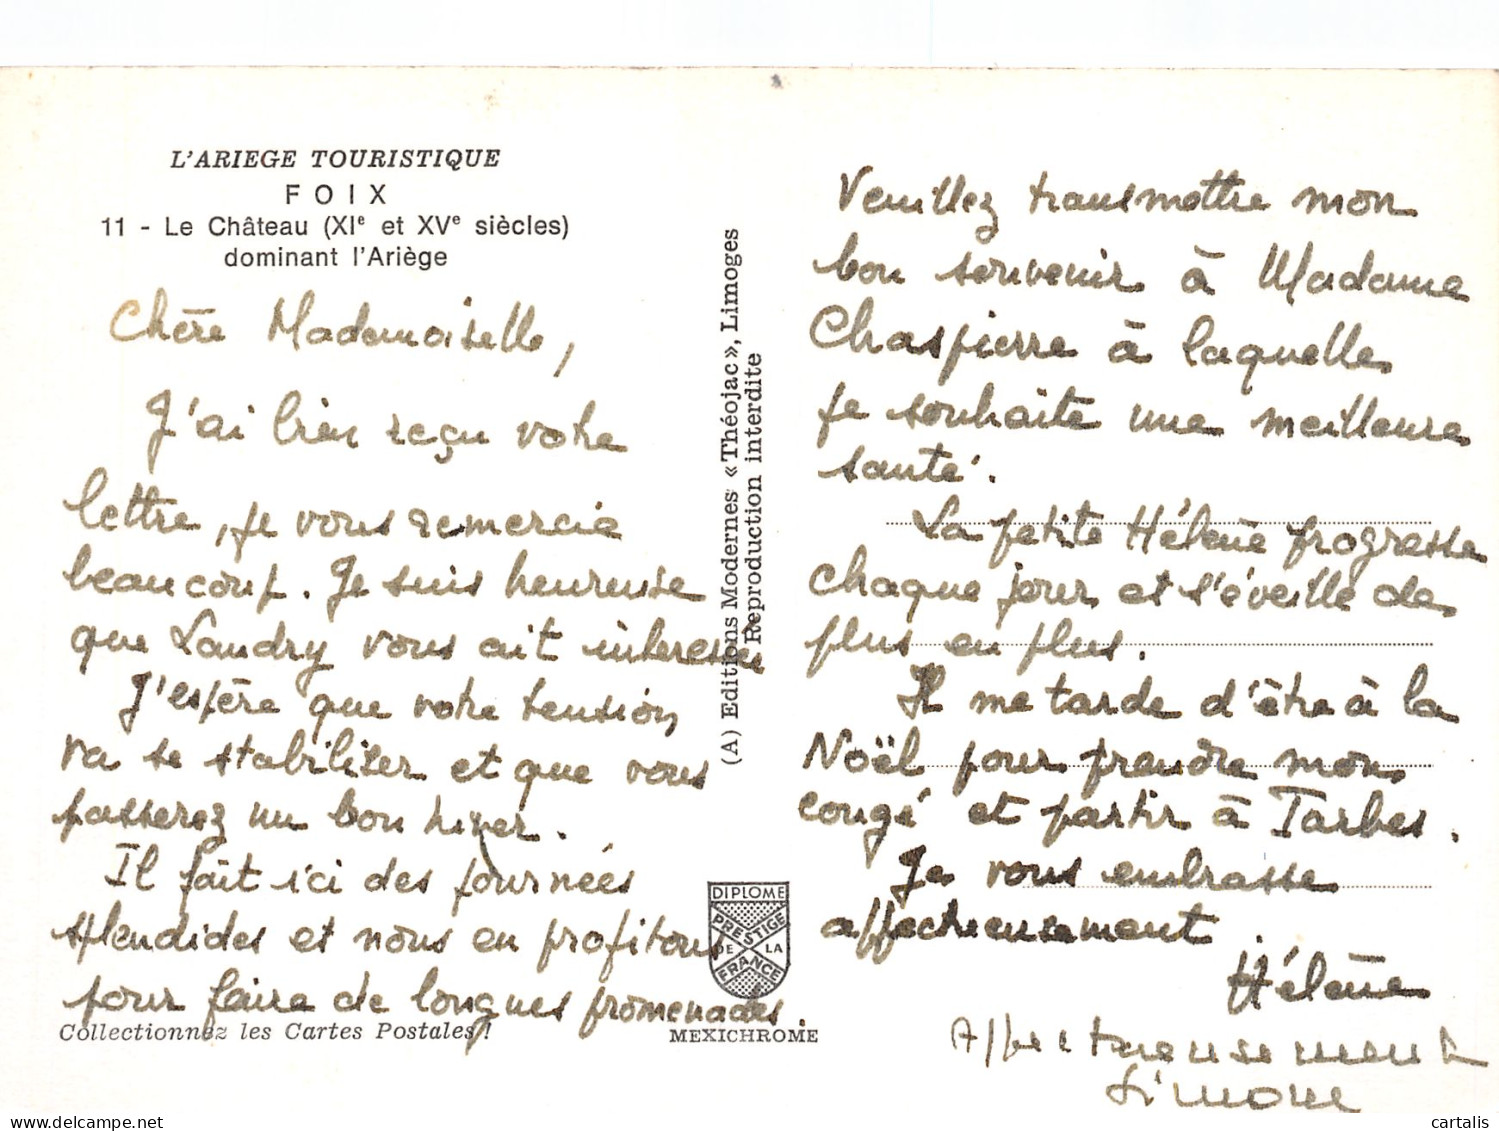 L'ARIEGE TOURISTIQUE
FOIX
11 - Le Château (XIe et XVe siècles)
dominant l'Ariège
Chère Mademoiselle,
J'ai bien reçu votre
lettre, je vous remercie
beaucoup. Je suis heureuse
que Landry vous ait intéressée
J'espère que votre tension
va se stabiliser et que vous
passerez un bon hiver.
Il fait ici des journées
splendides et nous en profitons
pour faire de longues promenades.
Collectionnez les Cartes Postales !
(A) Editions Modernes «Théojac», Limoges
Reproduction interdite
DIPLOME
PRESTIGE
DE LA
FRANCE
MEXICHROME
Veuillez transmettre mon
bon souvenir à Madame
Chaspierre à laquelle
je souhaite une meilleure
santé.
La petite Hélène progresse
chaque jour et s'éveille de
plus en plus.
Il me tarde d'être à la
Noël pour prendre mon
congé et partir à Tarbes.
Je vous embrasse
affectueusement
Hélène
Affectueusement
Simone
delcampe.net
cartalis